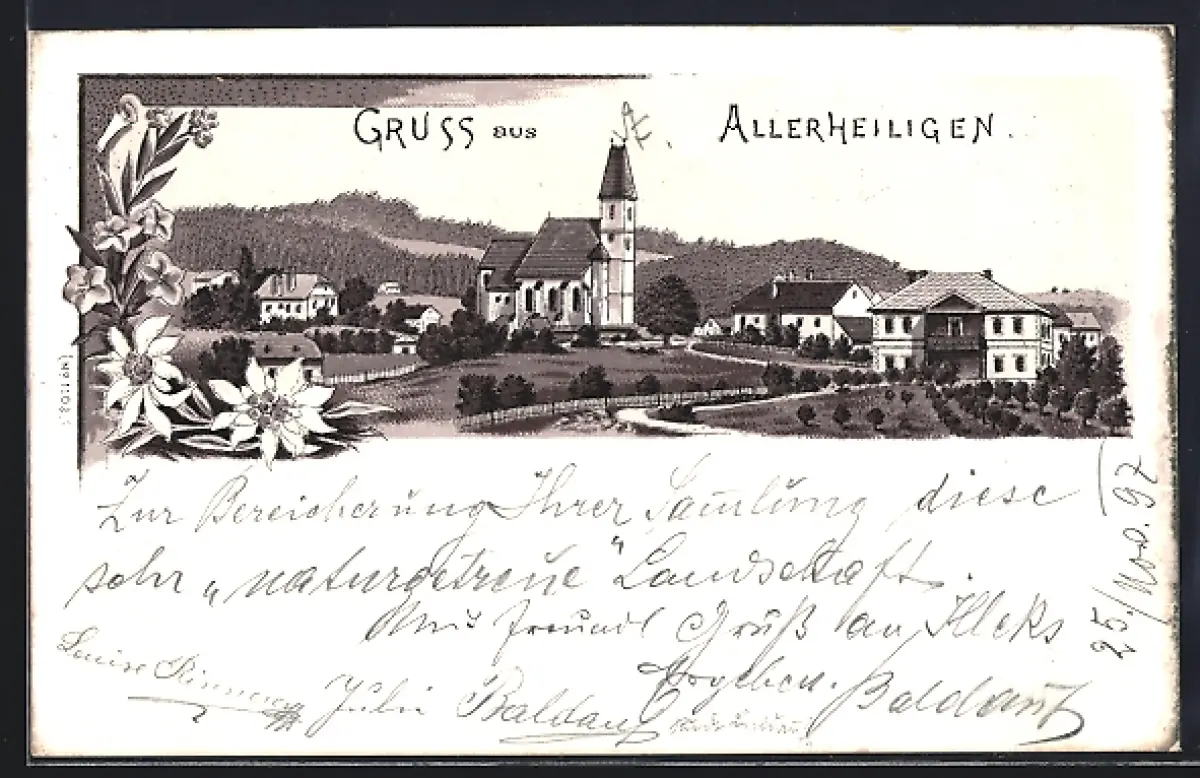 GRUSS aus ALLERHEILIGEN.
Zur Bereicherung Ihrer Sam̅lung diese
sehr „naturgetreue" Landschaft.
Mit freundl Gruß an
Baldauf
Louise
Julie Baldauf
25/Nov. 97